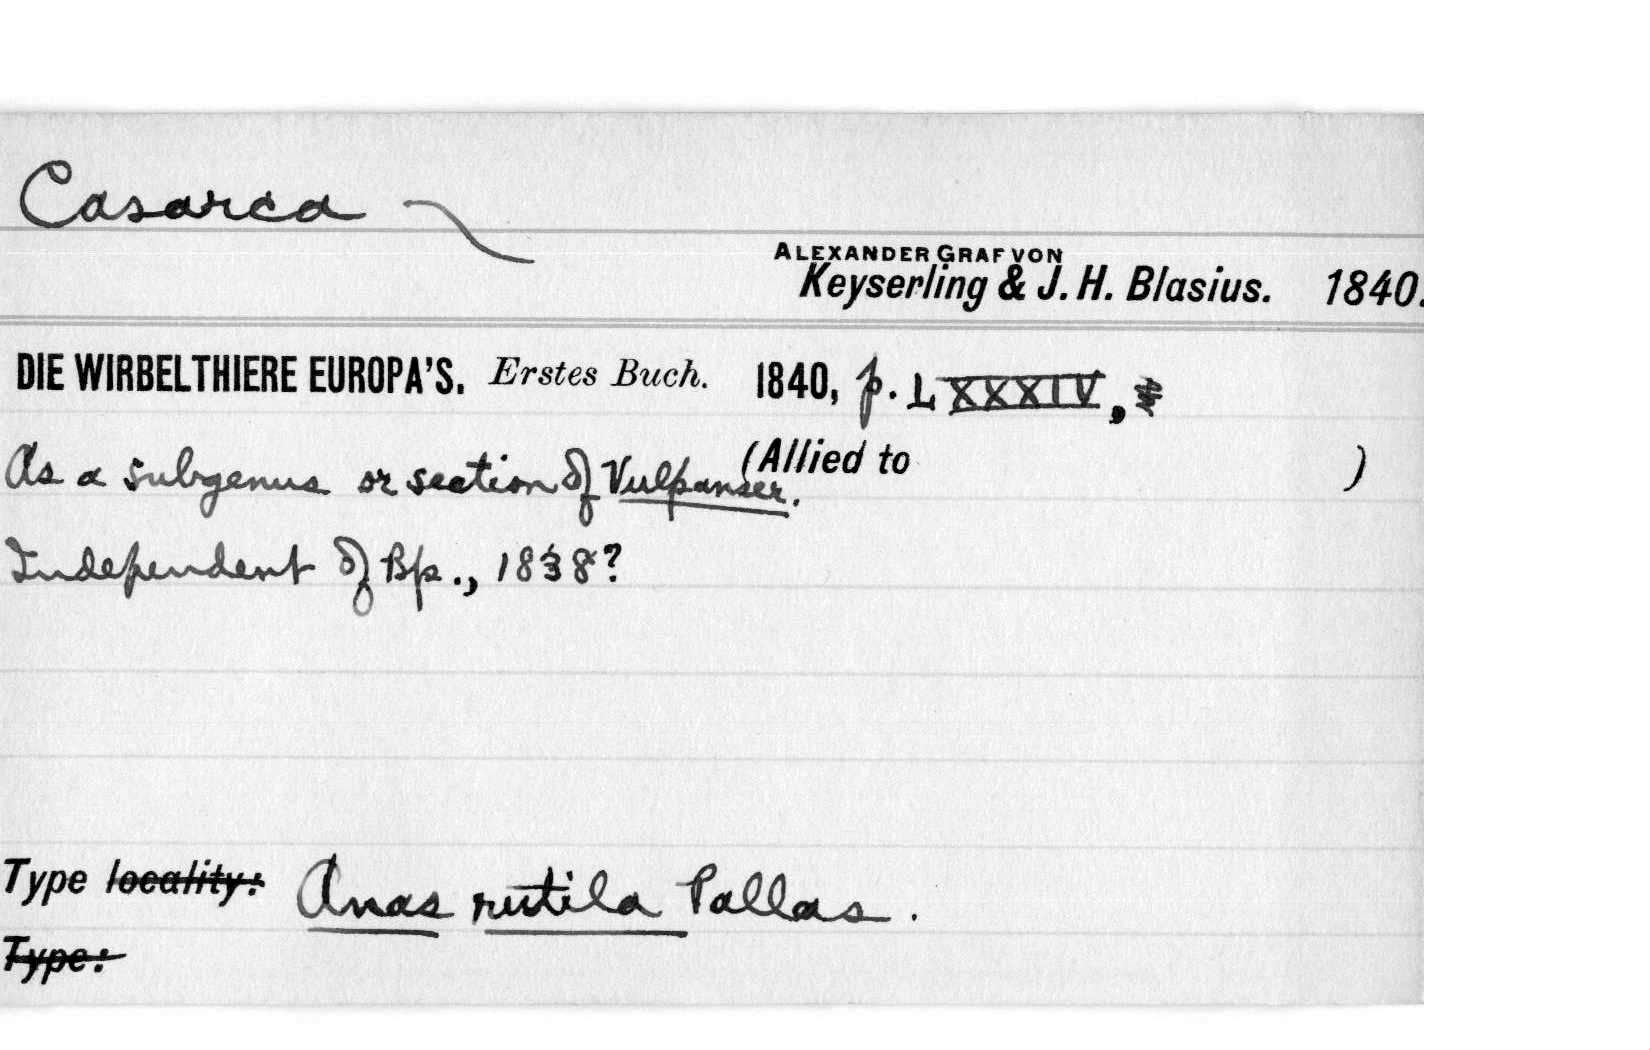 Casarca
ALEXANDER GRAF VON
Keyserling & J. H. Blasius. 1840.
DIE WIRBELTHIERE EUROPA'S. Erstes Buch. 1840, p. LXXXIV,
(Allied to )
As a subgenus or section of Vulpanser.
Independent of Bp., 1838?
Type locality: Anas rutila Pallas.
Type: